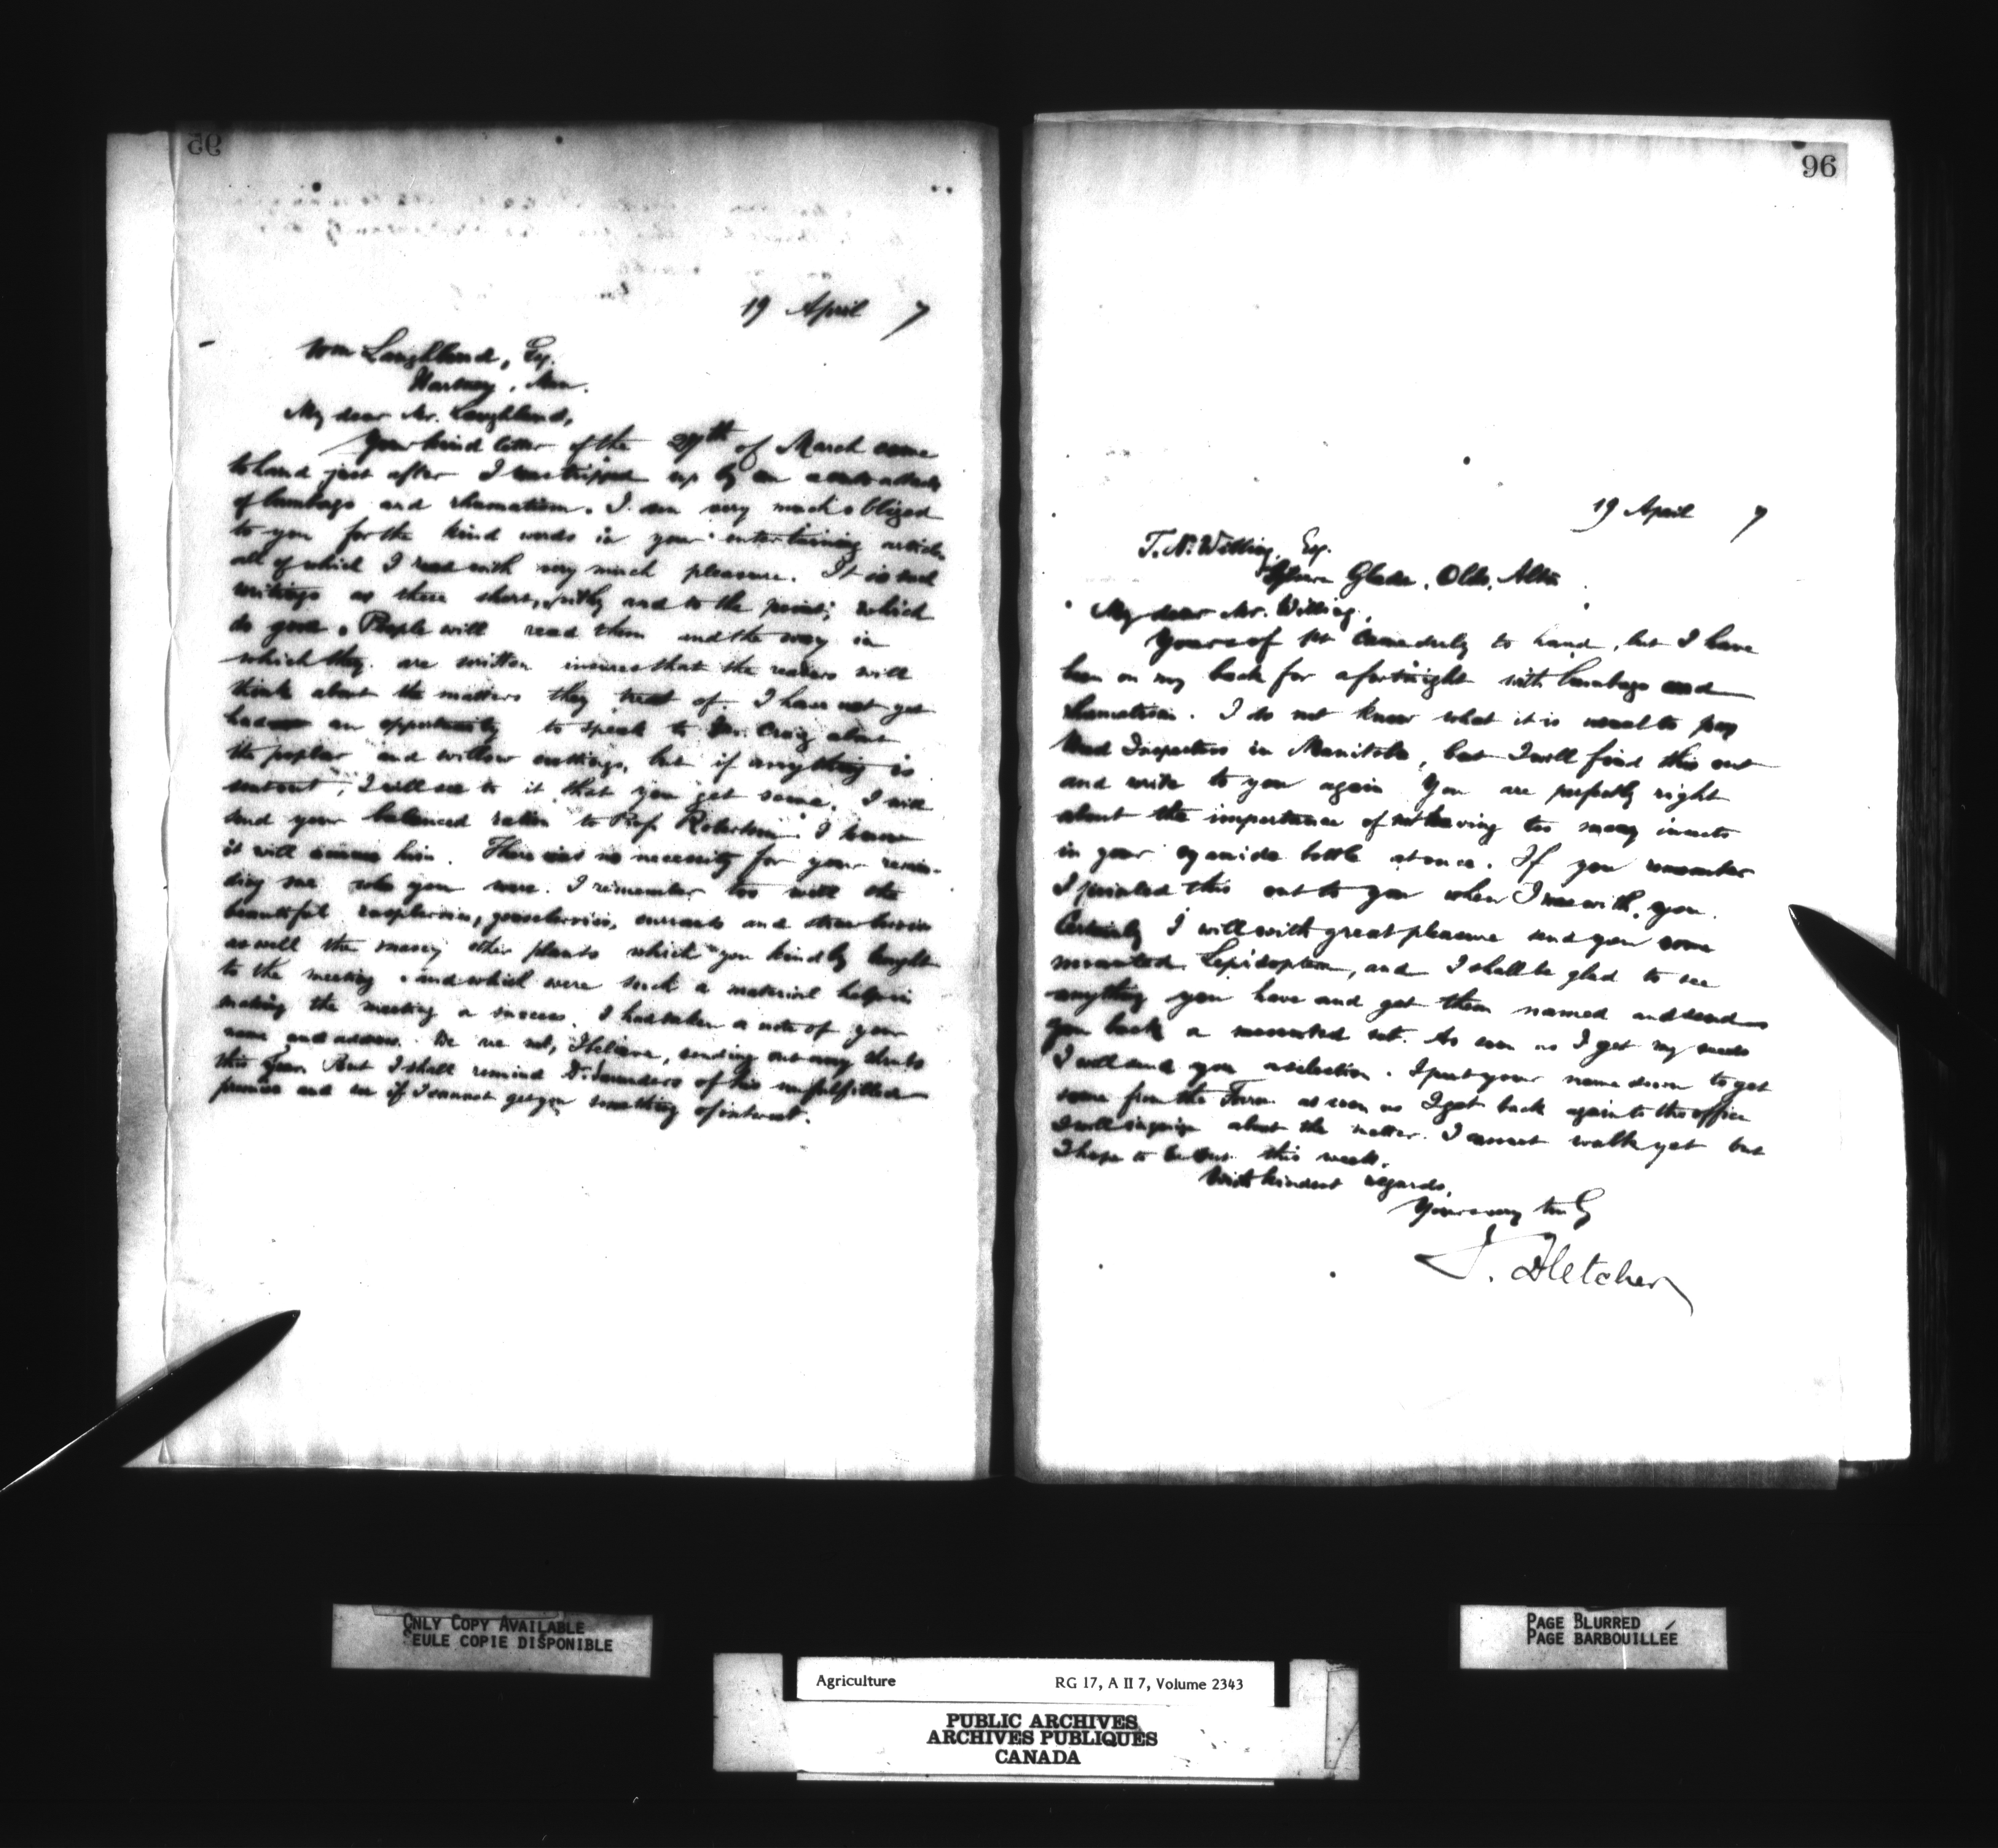 95
19 April 7
Wm Laughland, Esq.
Hartney, Man.
My dear Mr. Laughland,
Your kind letter of the 27th of March came
to hand just after I was tripped up by an acute attack
of lumbago and rheumatism. I am very much obliged
to you for the kind words in your entertaining article
all of which I read with very much pleasure. It is such
writings as these short, pithy and to the point; which
do good. People will read them and the way in
which they are written insures that the readers will
think about the matters they treat of. I have not yet
had an opportunity to speak to Mr. Craig about
the poplar and willow cuttings, but if anything is
sent out, I will see to it that you get some. I will
send your balanced ration to Prof. Robertson. I know
it will amuse him. There was no necessity for your remin-
ding me who you were. I remember too well the
beautiful raspberries, gooseberries, currants and strawberries
as well the many other plants which you kindly brought
to the meeting and which were such a material help in
making the meeting a success. I had taken a note of your
name and address. We are not, I believe, sending out any shrubs
this year. But I shall remind Dr. Saunders of his unfulfilled
promise and see if I cannot get you something of interest.
96
19 April 7
T. N. Willing, Esq.
Glade, Olds, Alta
My dear Mr. Willing,
Yours of 1st came duly to hand, but I have
been on my back for a fortnight with lumbago and
rheumatism. I do not know what it is usual to pay
Weed Inspectors in Manitoba, but I will find this out
and write to you again. You are perfectly right
about the importance of not having too many insects
in your cyanide bottle at once. If you remember
I pointed this out to you when I was with you.
Certainly I will with great pleasure send you some
mounted Lepidoptera, and I shall be glad to see
anything you have and get them named and send
you back a mounted set. As soon as I get my seeds
I will send you a selection. I put your name down to get
some from the Farm as soon as I get back again to the office
I will inquire about the matter. I cannot walk yet but
I hope to be out this week.
With kindest regards,
Yours very truly
J. Fletcher
ONLY COPY AVAILABLE
SEULE COPIE DISPONIBLE
PAGE BLURRED
PAGE BARBOUILLÉE
Agriculture RG 17, A II 7, Volume 2343
PUBLIC ARCHIVES
ARCHIVES PUBLIQUES
CANADA